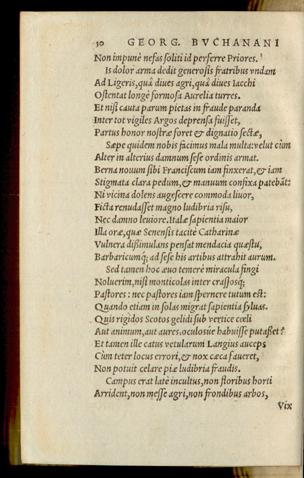 30 GEORG. BVCHANANI
Non impunè nefas soliti id perferre Priores.
Is dolor arma dedit generosis fratribus vndam
Ad Ligeris, quà diues agri, quà diues Iacchi
Ostentat longè formosa Aurelia turres.
Et nisi cauta parum pietas in fraude paranda
Inter tot vigiles Argos deprensa fuisset,
Partus honor nostræ foret & dignatio sectæ,
Sæpe quidem nobis facimus mala multa: velut cùm
Alter in alterius damnum sese ordinis armat.
Berna nouum sibi Franciscum iam finxerat, & iam
Stigmata clara pedum, & manuum confixa patebāt:
Ni vicina dolens augescere commoda liuor,
Ficta renudasset magno ludibria risu,
Nec damno leuiore. Italæ sapientia maior
Illa oræ, quæ Senensis tacitè Catharinæ
Vulnera dissimulans pensat mendacia quæstu,
Barbaricumq́; ad sese his artibus attrahit aurum.
Sed tamen hoc æuo temerè miracula fingi
Noluerim, nisi monticolas inter crassosq́;
Pastores: nec pastores iam spernere tutum est:
Quando etiam in solas migrat sapientia syluas.
Quis rigidos Scotos gelidi sub vertice cœli
Aut animum, aut aures, oculosue habuisse putasset?
Et tamen ille catus vetularum Langius auceps
Cùm teter locus errori, & nox cæca faueret,
Non potuit celare piæ ludibria fraudis.
Campus erat latè incultus, non floribus horti
Arrident, non messe agri, non frondibus arbos,
Vix